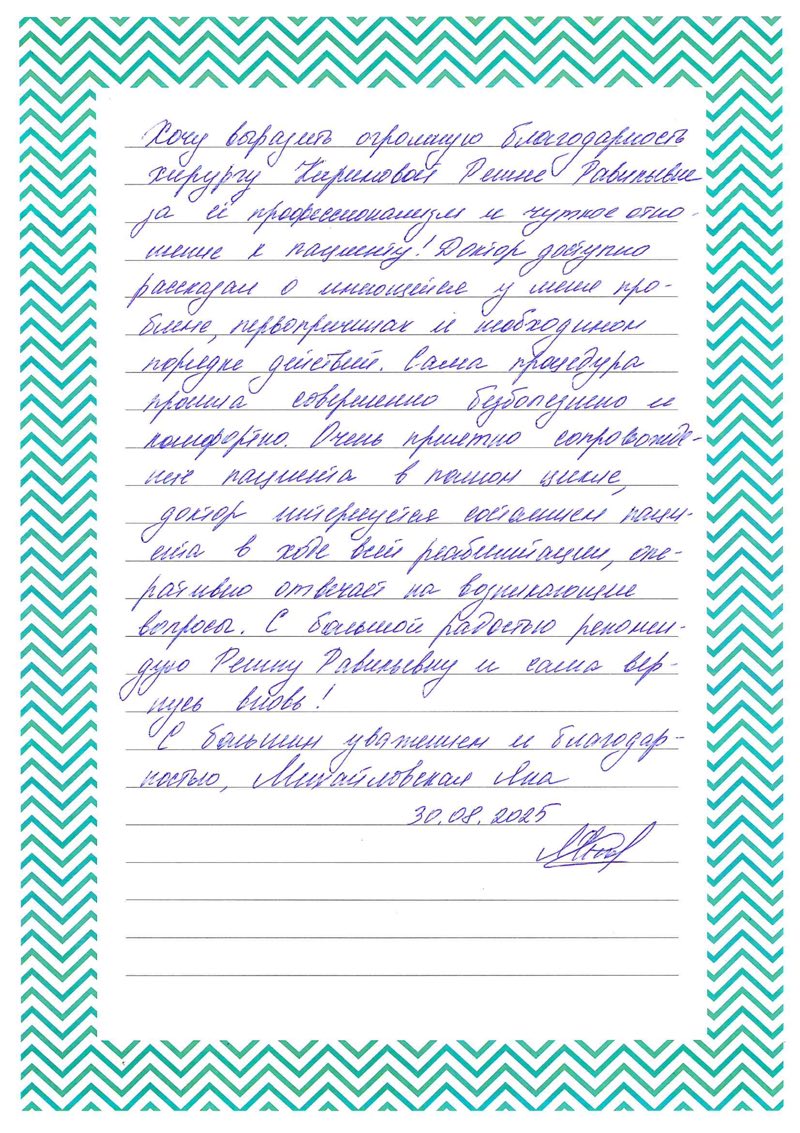 Хочу выразить огромную благодарность
хирургу Каримовой Регине Равильевне
за её профессионализм и чуткое отно-
шение к пациенту! Доктор доступно
рассказал о имеющейся у меня про-
блеме, первопричинах и необходимом
порядке действий. Сама процедура
прошла совершенно безболезненно и
комфортно. Очень приятно сопровожде-
ние пациента в полном цикле,
доктор интересуется состоянием паци-
ента в ходе всей реабилитации, опе-
ративно отвечает на возникающие
вопросы. С большой радостью рекомен-
дую Регину Равильевну и сама вер-
нусь вновь!
С большим уважением и благодар-
ностью, Михайловская Яна
30.08.2025